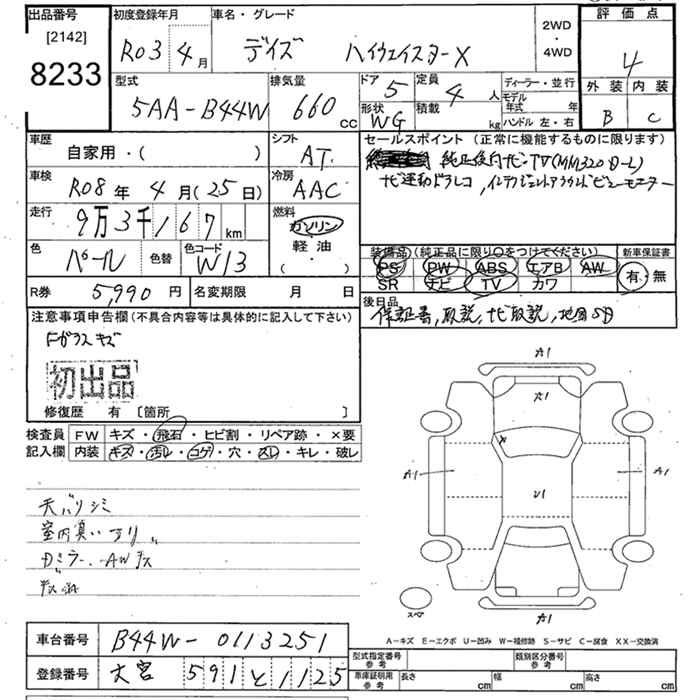 出品番号
[2142]
8233
初度登録年月
R03 年 4 月
車名・グレード
デイズ ハイウェイスターX
2WD
・
4WD
評価点
4
外装 内装
B C
型式
5AA-B44W
排気量
660 cc
ドア 5
形状 WG
定員 4 人
積載 kg
ディーラー・並行
モデル年式 年
ハンドル 左・右
車歴
自家用・( )
シフト
AT
車検
R08 年 4 月 (25 日)
冷房
AAC
走行
9万3千167 km
燃料
ガソリン
軽油
( ・ )
色
パール
色替
色コード
W13
セールスポイント (正常に機能するものに限ります)
純正後内ナビ・TV(MM320D-L)
ナビ連動ドラレコ,インテリジェントアラウンドビューモニター
装備品 (純正品に限り○をつけてください)
PS PW ABS エアB AW
SR ナビ TV カワ
新車保証書
有・無
R券 5,990 円
名変期限 月 日
後日品
保証書,取説,ナビ取説,地図SD
注意事項申告欄 (不具合内容等は具体的に記入して下さい)
Fガラスキズ
初出品
修復歴 有 [箇所 ]
検査員記入欄
FW キズ・飛石・ヒビ割・リペア跡・×要
内装 キズ・汚レ・コゲ・穴・スレ・キレ・破レ
天バリシミ
室内臭い
ドミラー、AWキズ
A1
A1
A1
A1
U1
A1
スペア
A-キズ E-エクボ U-凹み W-補修跡 S-サビ C-腐食 XX-交換済
車台番号
B44W-0113251
登録番号
大宮 591 と 1125
型式指定番号 参考
類別区分番号 参考
車庫証明用 参考
長さ cm
幅 cm
高さ cm